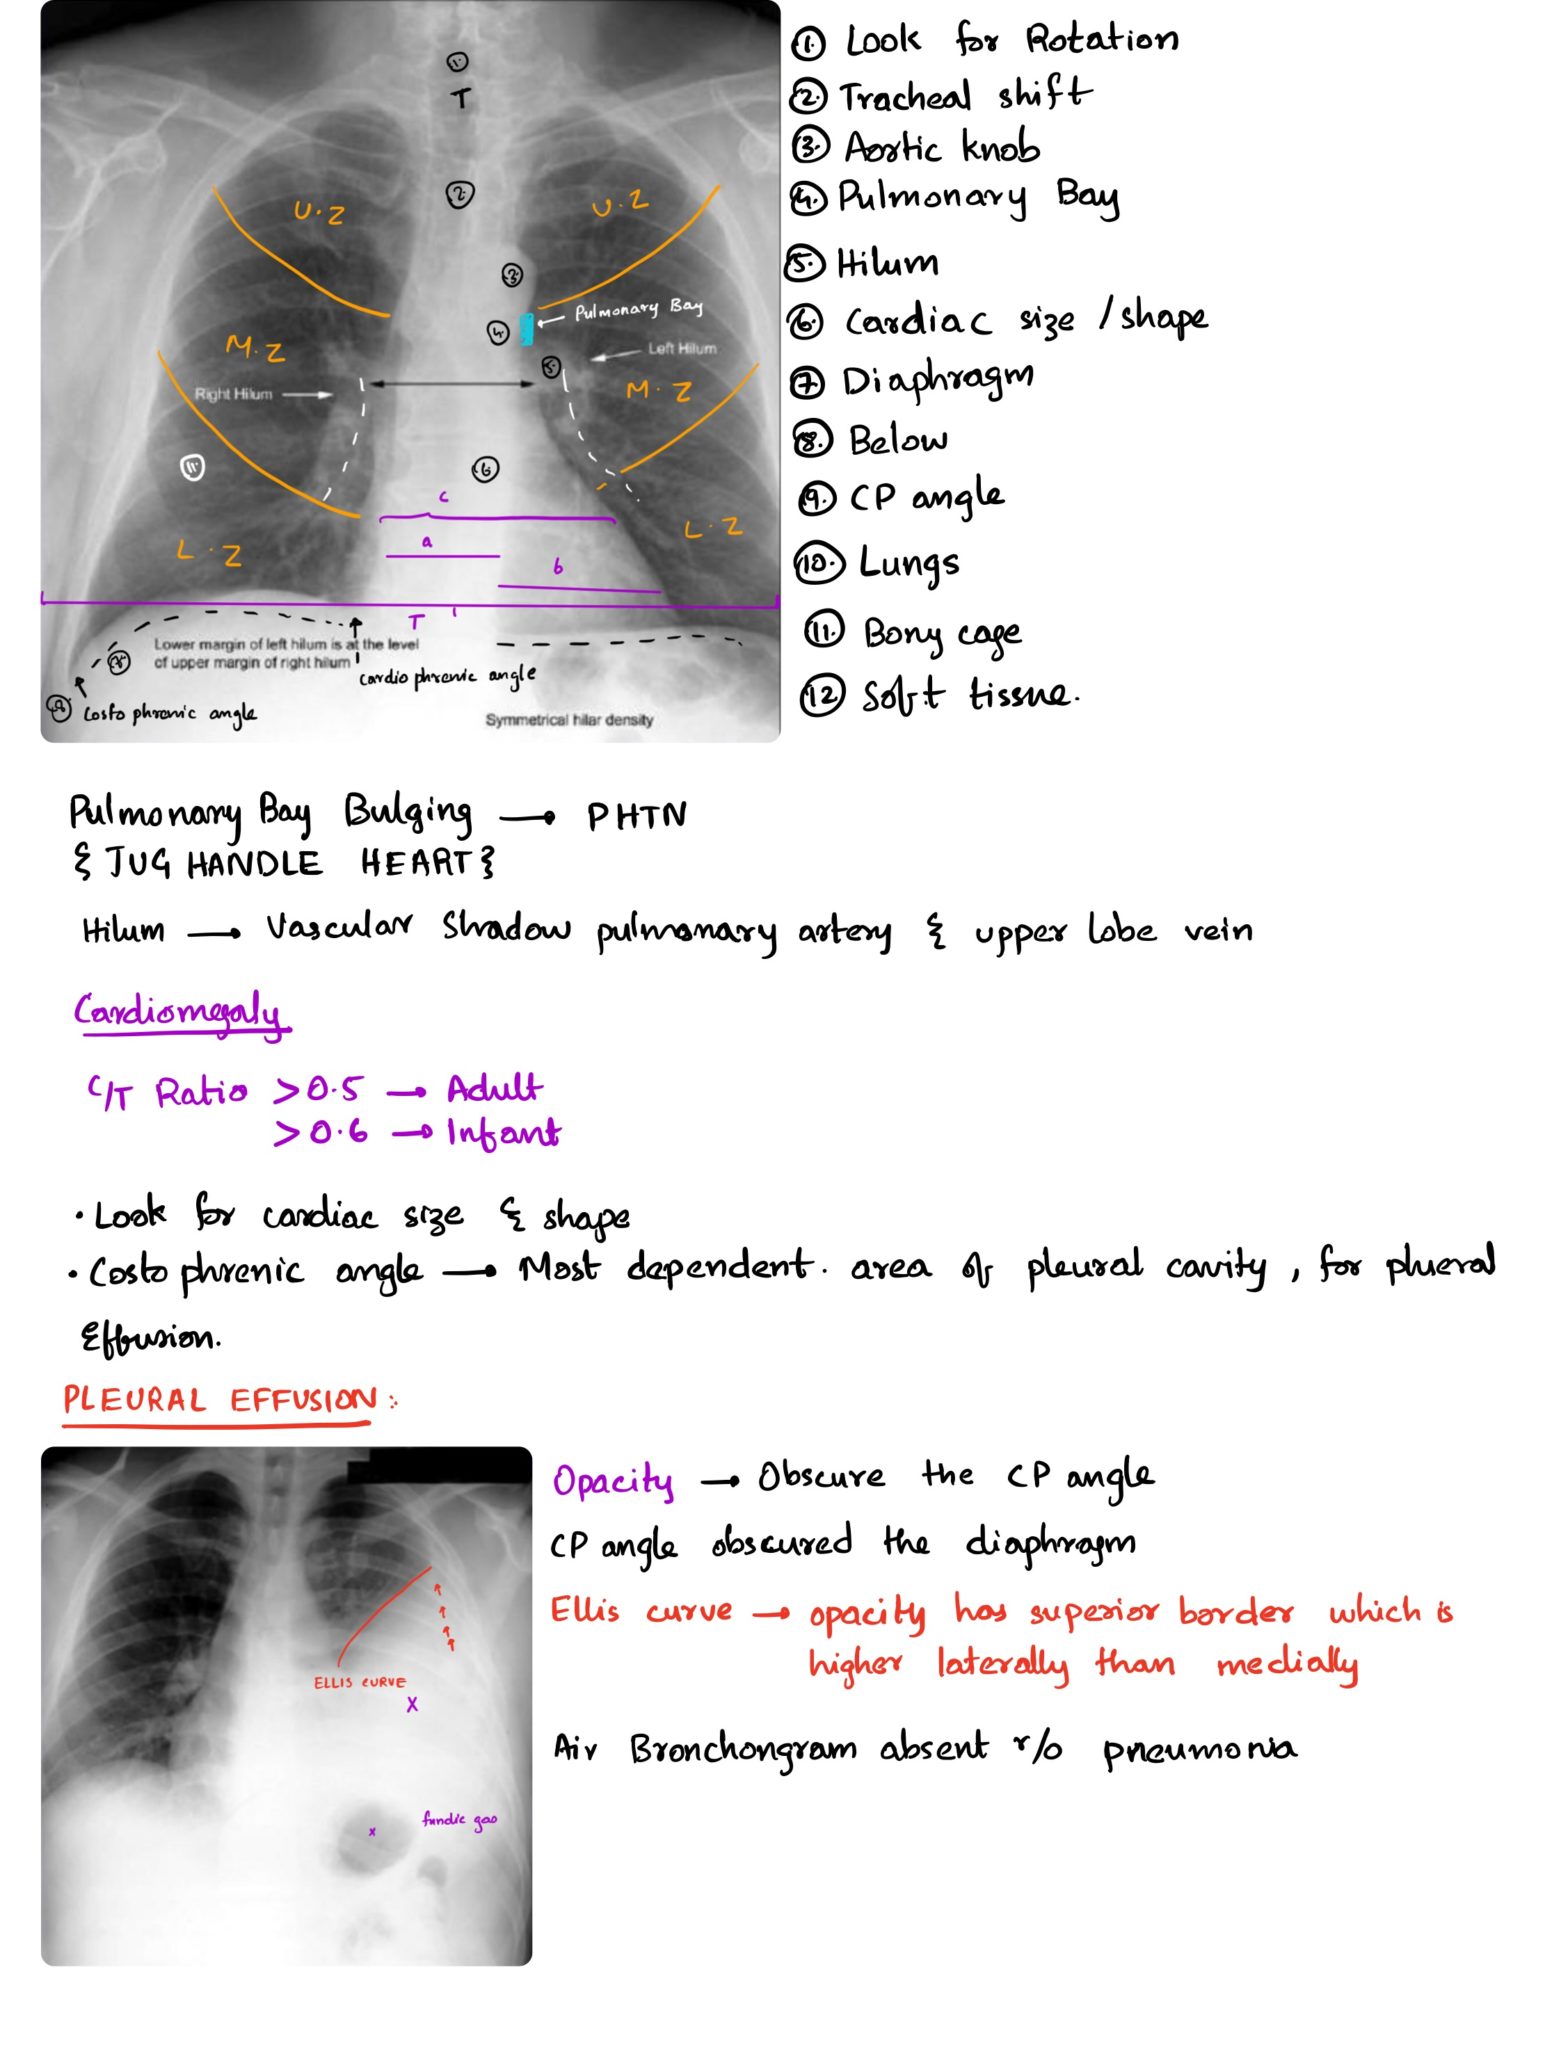 ① Look for Rotation
② Tracheal shift
③ Aortic knob
④ Pulmonary Bay
⑤ Hilum
⑥ Cardiac size / shape
⑦ Diaphragm
⑧ Below
⑨ CP angle
⑩ Lungs
⑪ Bony cage
⑫ Soft tissue.
①
T
②
U.Z
U.Z
③
④
Pulmonary Bay
Left Hilum
⑤
M.Z
M.Z
Right Hilum
⑪
⑥
c
a
b
L.Z
L.Z
T
Lower margin of left hilum is at the level
of upper margin of right hilum
cardio phrenic angle
Costo phrenic angle
Symmetrical hilar density
Pulmonary Bay Bulging → PHTN
{ JUG HANDLE HEART }
Hilum → Vascular Shadow pulmonary artery & upper lobe vein
Cardiomegaly
C/T Ratio >0.5 → Adult
>0.6 → Infant
• Look for cardiac size & shape
• Costo phrenic angle → Most dependent. area of pleural cavity, for plueral
Effusion.
PLEURAL EFFUSION :
Opacity → Obscure the CP angle
CP angle obscured the diaphragm
Ellis curve → opacity has superior border which is
higher laterally than medially
Air Bronchongram absent r/o pneumonia
ELLIS CURVE
X
x
fundic gas